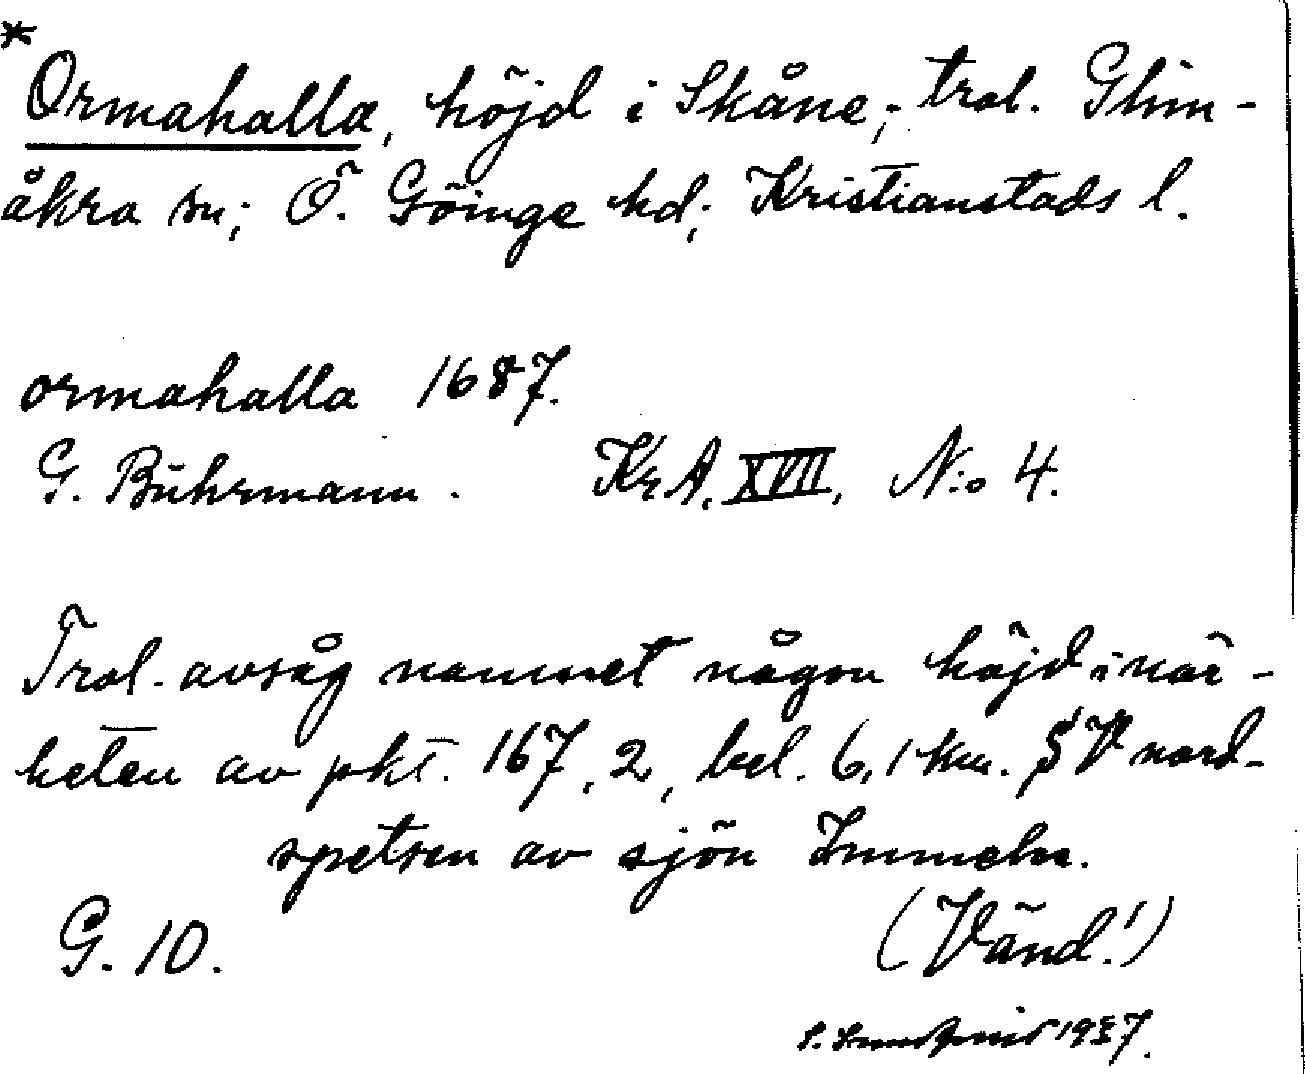 *
Ormahalla, höjd i Skåne; trol. Glim-
åkra sn; Ö. Göinge hd; Kristianstads l.
ormahalla 1687.
G. Buhrmann. KrA, XVII, N:o 4.
Trol. avsåg namnet någon höjd i när-
heten av pkt. 167,2, bel. 6,1 km. SV nord-
spetsen av sjön Immeln.
G. 10. (Vänd!)
1937.